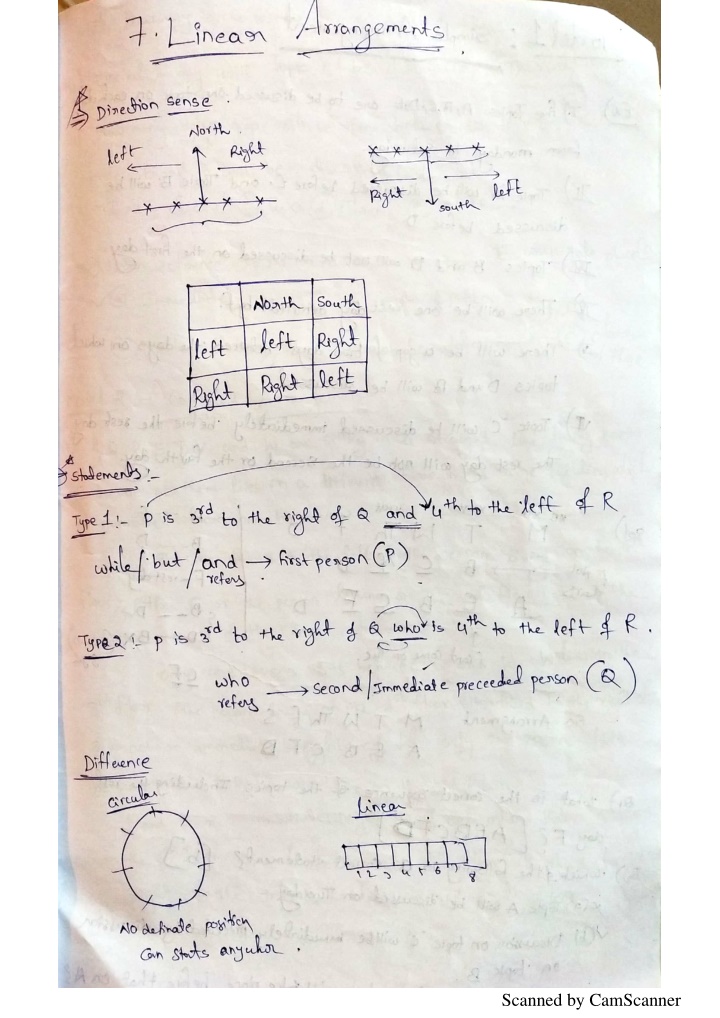 7. Linear Arrangements.
Direction sense.
North.
left Right
Right South left
North South
Left left Right
Right Right left
Statements :-
Type 1:- P is 3rd to the right of Q and 4th to the left of R
while / but / and refers → first person (P)
Type 2:- P is 3rd to the right of Q who is 4th to the left of R.
who refers → second / Immediate preceeded person (Q)
Difference
Circular
Linear
1 2 3 4 5 6 7 8
No definate position
Can starts anywhor.
Scanned by CamScanner